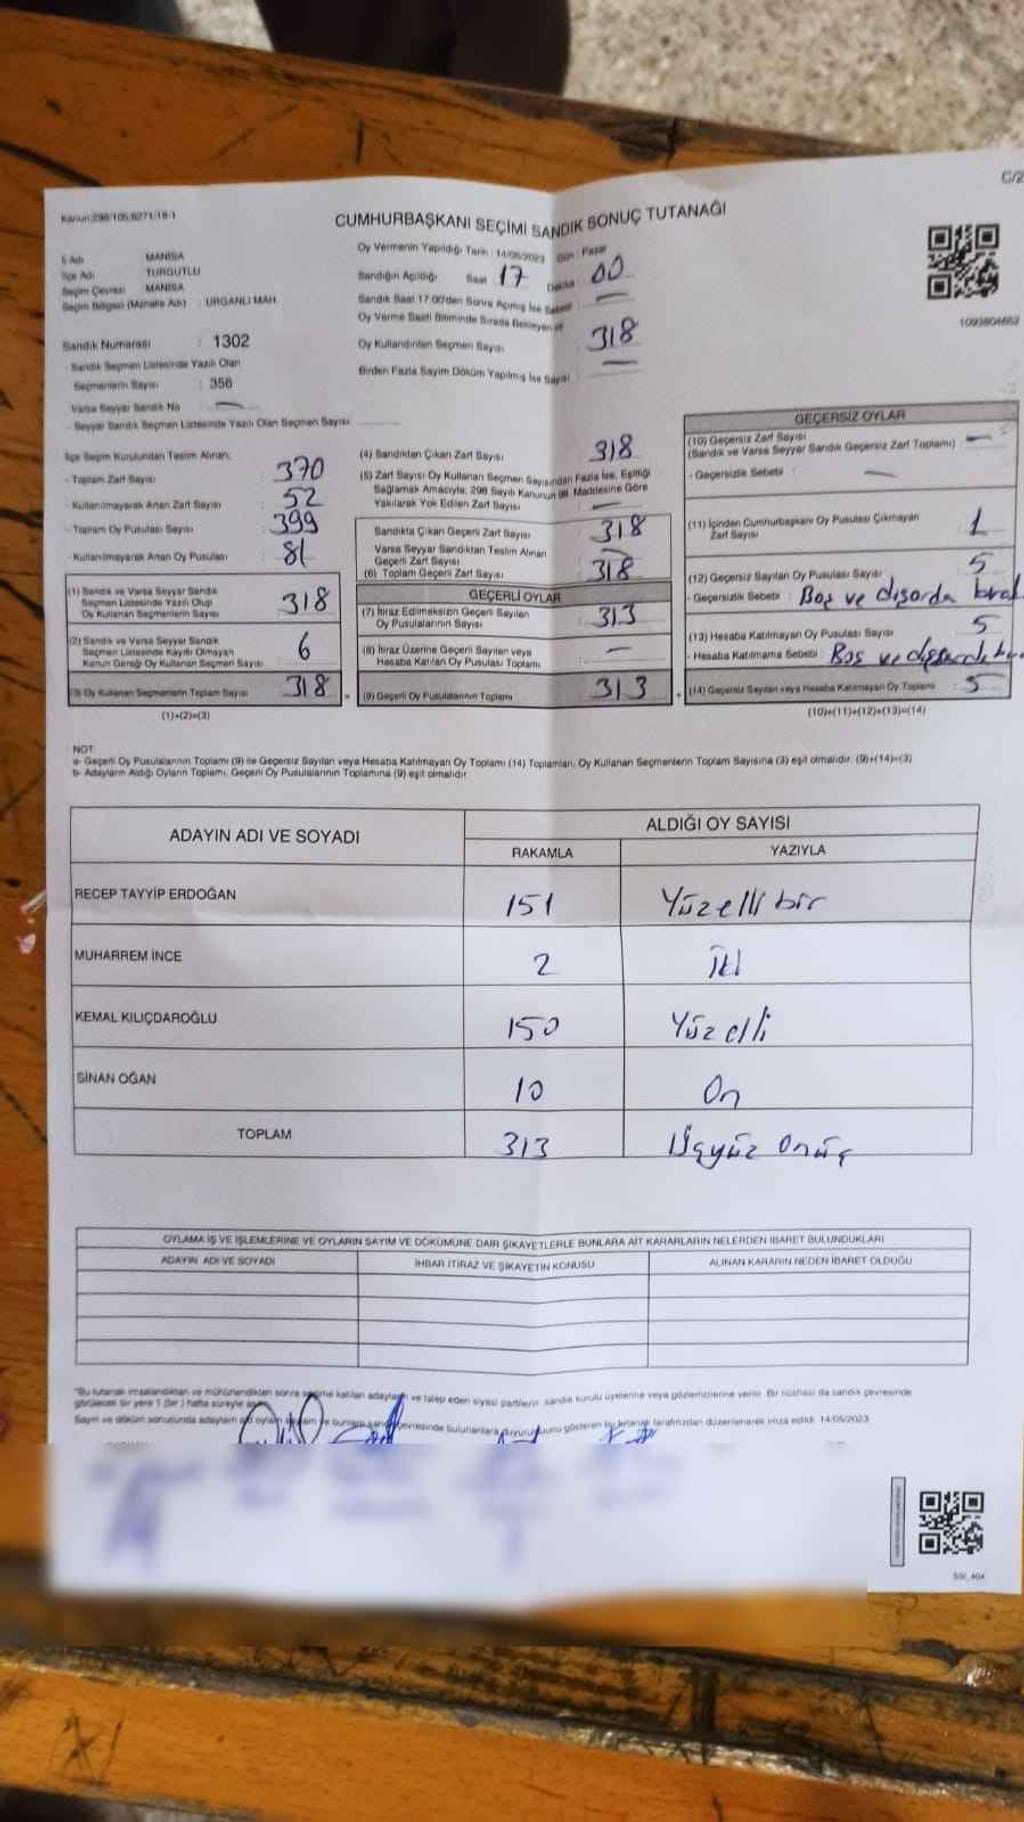 C/2
Kanun:298/105,6271/18-1
CUMHURBAŞKANI SEÇİMİ SANDIK SONUÇ TUTANAĞI
İl Adı MANİSA
İlçe Adı TURGUTLU
Seçim Çevresi MANİSA
Seçim Bölgesi (Mahalle Adı) : URGANLI MAH.
Sandık Numarası : 1302
- Sandık Seçmen Listesinde Yazılı Olan
Seçmenlerin Sayısı : 356
Varsa Seyyar Sandık No —
- Seyyar Sandık Seçmen Listesinde Yazılı Olan Seçmen Sayısı
Oy Vermenin Yapıldığı Tarih : 14/05/2023 Gün : Pazar
Sandığın Açıldığı Saat : 17 Dakika : 00
Sandık Saat 17:00'den Sonra Açılmış İse Sebebi —
Oy Verme Saati Bitiminde Sırada Bekleyen
Oy Kullandırılan Seçmen Sayısı 318
Birden Fazla Sayım Döküm Yapılmış İse Sayısı —
1093804662
İlçe Seçim Kurulundan Teslim Alınan;
- Toplam Zarf Sayısı 370
- Kullanılmayarak Artan Zarf Sayısı 52
- Toplam Oy Pusulası Sayısı 399
- Kullanılmayarak Artan Oy Pusulası 81
(1) Sandık ve Varsa Seyyar Sandık
Seçmen Listesinde Yazılı Olup
Oy Kullanan Seçmenlerin Sayısı 318
(2) Sandık ve Varsa Seyyar Sandık
Seçmen Listesinde Kayıtlı Olmayan
Kanun Gereği Oy Kullanan Seçmen Sayısı 6
(3) Oy Kullanan Seçmenlerin Toplam Sayısı 318
(1)+(2)=(3)
(4) Sandıktan Çıkan Zarf Sayısı 318
(5) Zarf Sayısı Oy Kullanan Seçmen Sayısından Fazla İse, Eşitliği
Sağlamak Amacıyla; 298 Sayılı Kanunun 98. Maddesine Göre
Yakılarak Yok Edilen Zarf Sayısı —
Sandıkta Çıkan Geçerli Zarf Sayısı 318
Varsa Seyyar Sandıktan Teslim Alınan
Geçerli Zarf Sayısı —
(6) Toplam Geçerli Zarf Sayısı 318
GEÇERLİ OYLAR
(7) İtiraz Edilmeksizin Geçerli Sayılan
Oy Pusulalarının Sayısı 313
(8) İtiraz Üzerine Geçerli Sayılan veya
Hesaba Katılan Oy Pusulası Toplamı —
(9) Geçerli Oy Pusulalarının Toplamı 313
GEÇERSİZ OYLAR
(10) Geçersiz Zarf Sayısı
(Sandık ve Varsa Seyyar Sandık Geçersiz Zarf Toplamı) —
- Geçersizlik Sebebi : —
(11) İçinden Cumhurbaşkanı Oy Pusulası Çıkmayan
Zarf Sayısı 1
(12) Geçersiz Sayılan Oy Pusulası Sayısı 5
- Geçersizlik Sebebi : Boş ve dışarda
(13) Hesaba Katılmayan Oy Pusulası Sayısı 5
- Hesaba Katılmama Sebebi : Boş ve
(14) Geçersiz Sayılan veya Hesaba Katılmayan Oy Toplamı 5
(10)+(11)+(12)+(13)=(14)
NOT:
a- Geçerli Oy Pusulalarının Toplamı (9) ile Geçersiz Sayılan veya Hesaba Katılmayan Oy Toplamı (14) Toplamları, Oy Kullanan Seçmenlerin Toplam Sayısına (3) eşit olmalıdır. (9)+(14)=(3)
b- Adayların Aldığı Oyların Toplamı, Geçerli Oy Pusulalarının Toplamına (9) eşit olmalıdır.
ADAYIN ADI VE SOYADI ALDIĞI OY SAYISI
RAKAMLA YAZIYLA
RECEP TAYYİP ERDOĞAN 151 Yüzelli bir
MUHARREM İNCE 2 İki
KEMAL KILIÇDAROĞLU 150 Yüzelli
SİNAN OĞAN 10 On
TOPLAM 313 Üçyüz Onüç
OYLAMA İŞ VE İŞLEMLERİNE VE OYLARIN SAYIM VE DÖKÜMÜNE DAİR ŞİKAYETLERLE BUNLARA AİT KARARLARIN NELERDEN İBARET BULUNDUKLARI
ADAYIN ADI VE SOYADI İHBAR İTİRAZ VE ŞİKAYETİN KONUSU ALINAN KARARIN NEDEN İBARET OLDUĞU
"Bu tutanak imzalandıktan ve mühürlendikten sonra seçime katılan adayların ve talep eden siyasi partilerin sandık kurulu üyelerine veya gözlemcilerine verilir. Bir nüshası da sandık çevresinde
görülecek bir yere 1 (bir) hafta süreyle
Sayım ve döküm sonucunda adayların oyların ve bunların sandık çevresinde bulunanlara duyurulduğunu gösteren iş bu tutanak tarafımızdan düzenlenerek imza edildi. 14/05/2023
SSI_404